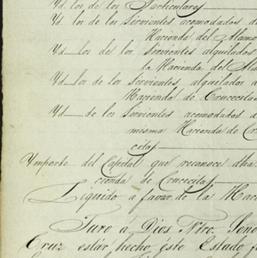 Yd. los de los Particulares
Yd lo de los Sirvientes acomodados de
Hacienda del Alamo
Yd los de los Sirvientes alquilados
la Hacienda del Al
Yd. los de los Sirvientes alquilados a
Hacienda de Crucecitas
Yd de los Sirvientes acomodados
misma Hacienda de Cru
celas
Ymporte del Capital que reconoce dha
cienda de Crucecitas
Liquido a favor de la Haci
Juro a Dios Ntro. Señor
Cruz estar hecho este Estado f